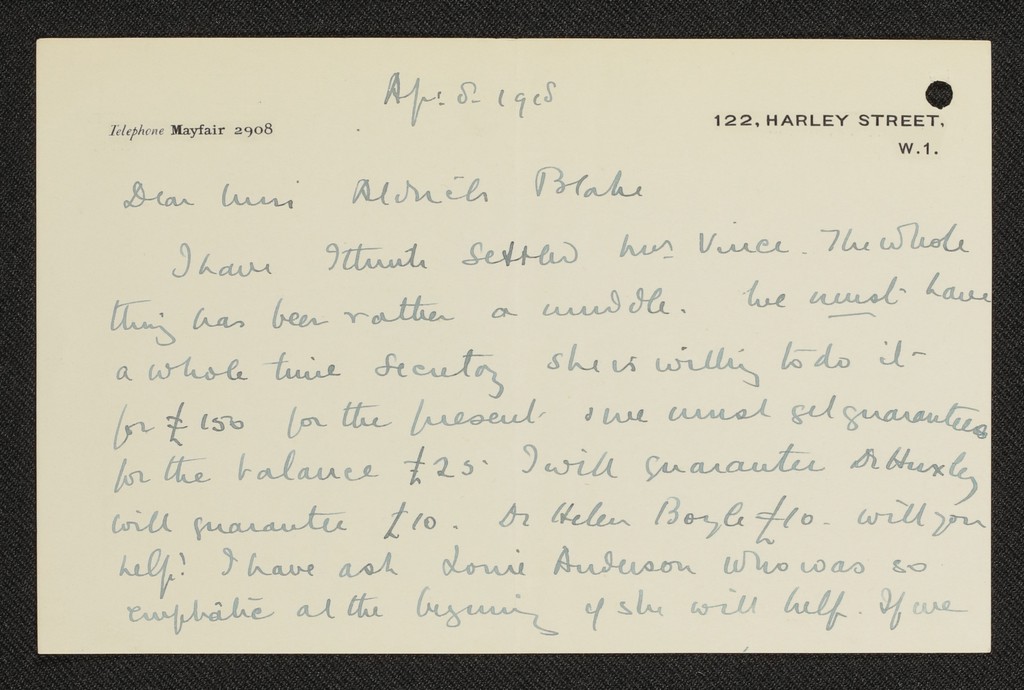 Ap: 8- 1918
Telephone Mayfair 2908
122, HARLEY STREET,
W.1.
Dear Miss Aldrich Blake
I have I think settled Mrs Vince. The whole
thing has been rather a muddle. We must have
a whole time Secretary she is willing to do it
for £150 for the present & we must get guarantees
for the balance £25. I will guarantee Dr Huxley
will guarantee £10. Dr Helen Boyle £10. will you
help? I have ask Louie Anderson who was so
emphatic at the begining if she will help. If we